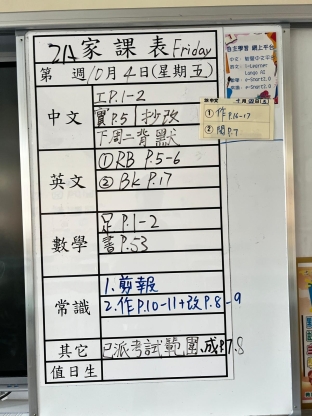 2A家課表 Friday
第 週10月4日(星期五)
中文
工P.1-2
實P.5 抄改
下周二背默
英文
①RB P.5-6
②BK P.17
數學
足P.1-2
書P.53
常識
1.剪報
2.作P.10-11+改P.8-9
其它
已派考試範圍.成P.7.8
值日生
自主學習 網上平台
①作P.16-17
②閱P.7